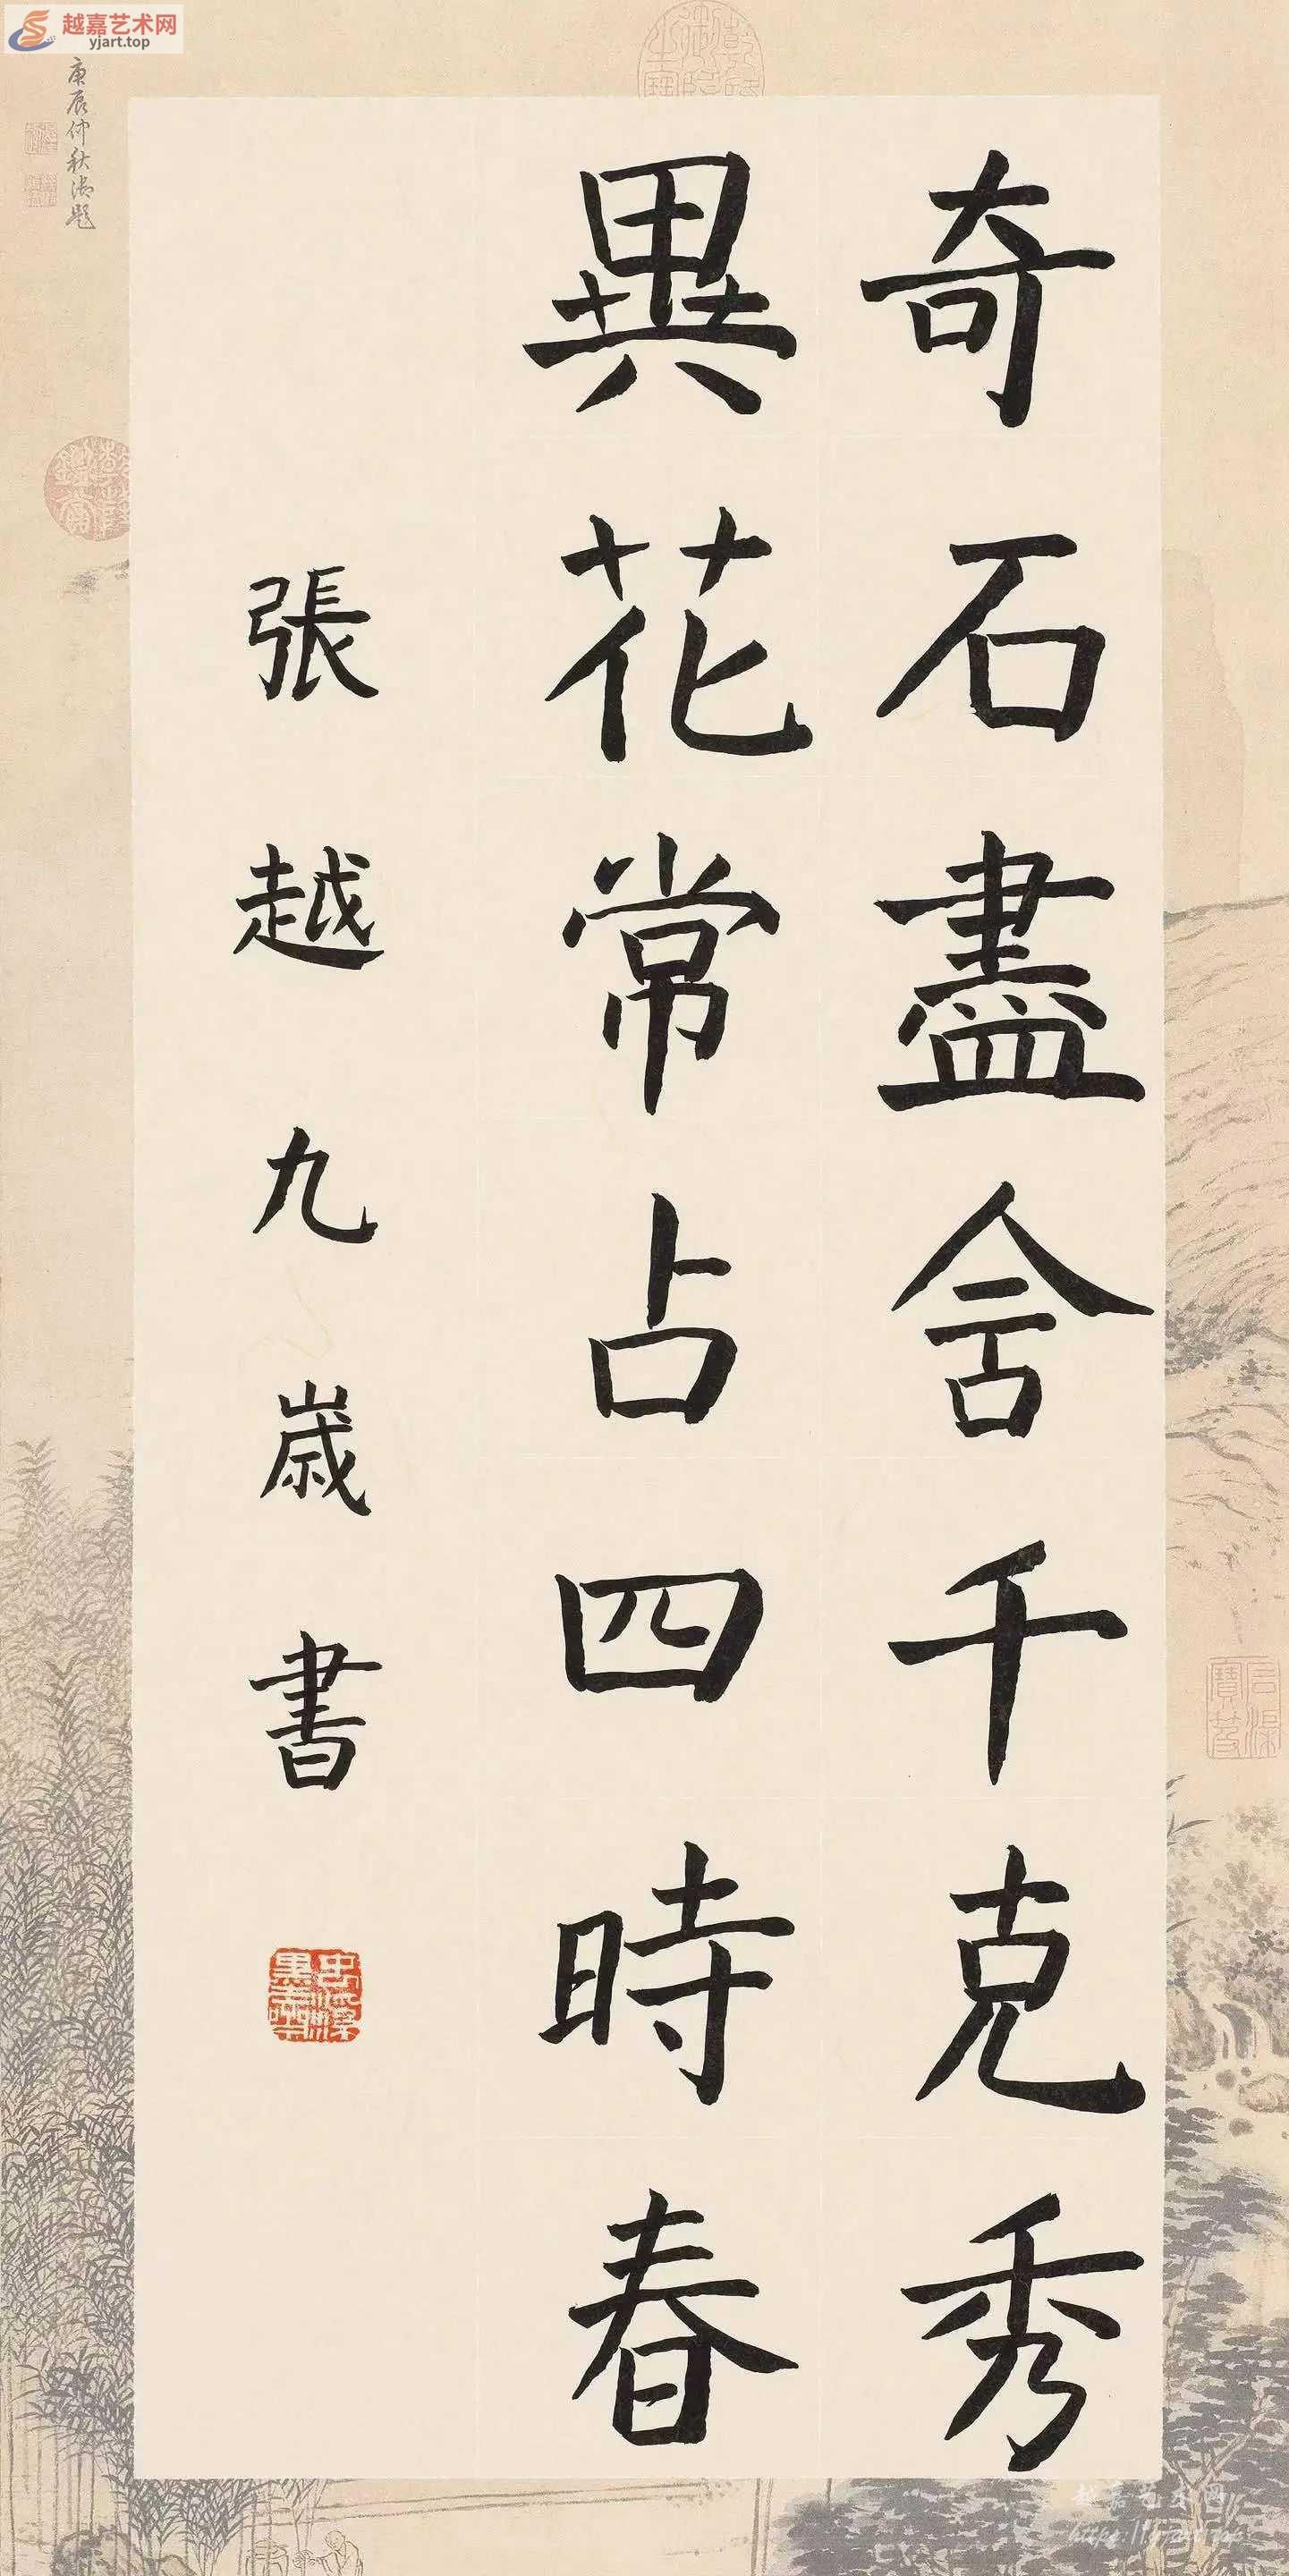 越嘉艺术网
yjart.top
奇石盡含千克秀
異花常占四時春
張越九歲書
庚辰仲秋御題
越嘉艺术网